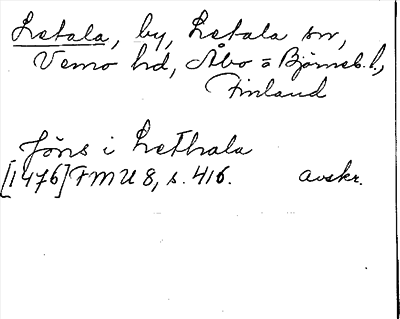 Letala, by, Letala sn,
Vemo hd, Åbo o Björneb. l.,
Finland
Jöns i LeThala
[1476] FMU 8, s. 416. avskr.